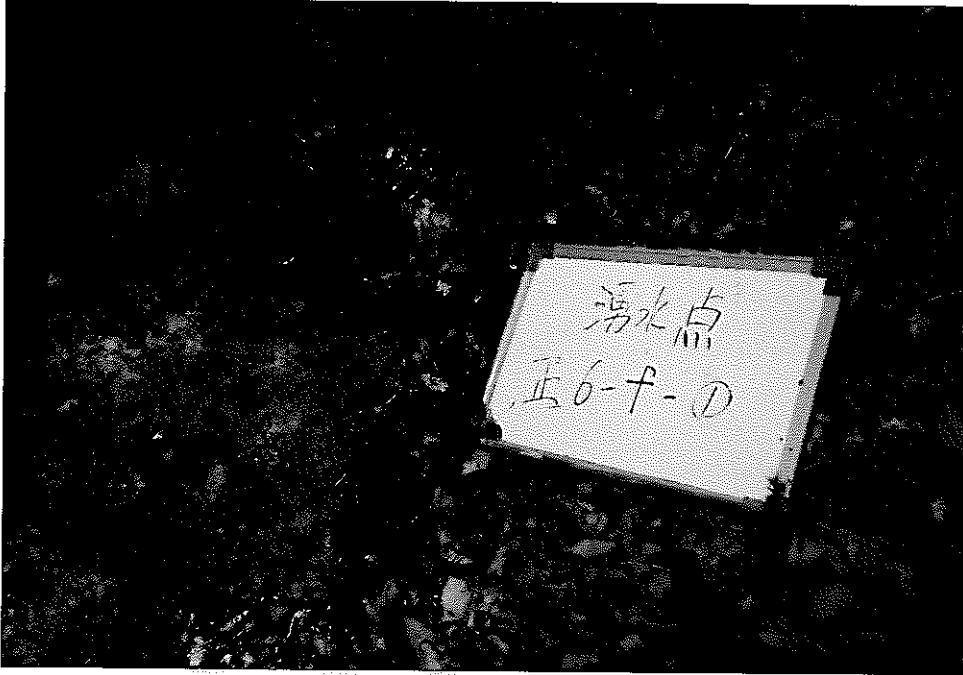 湧水点
正6-f-①